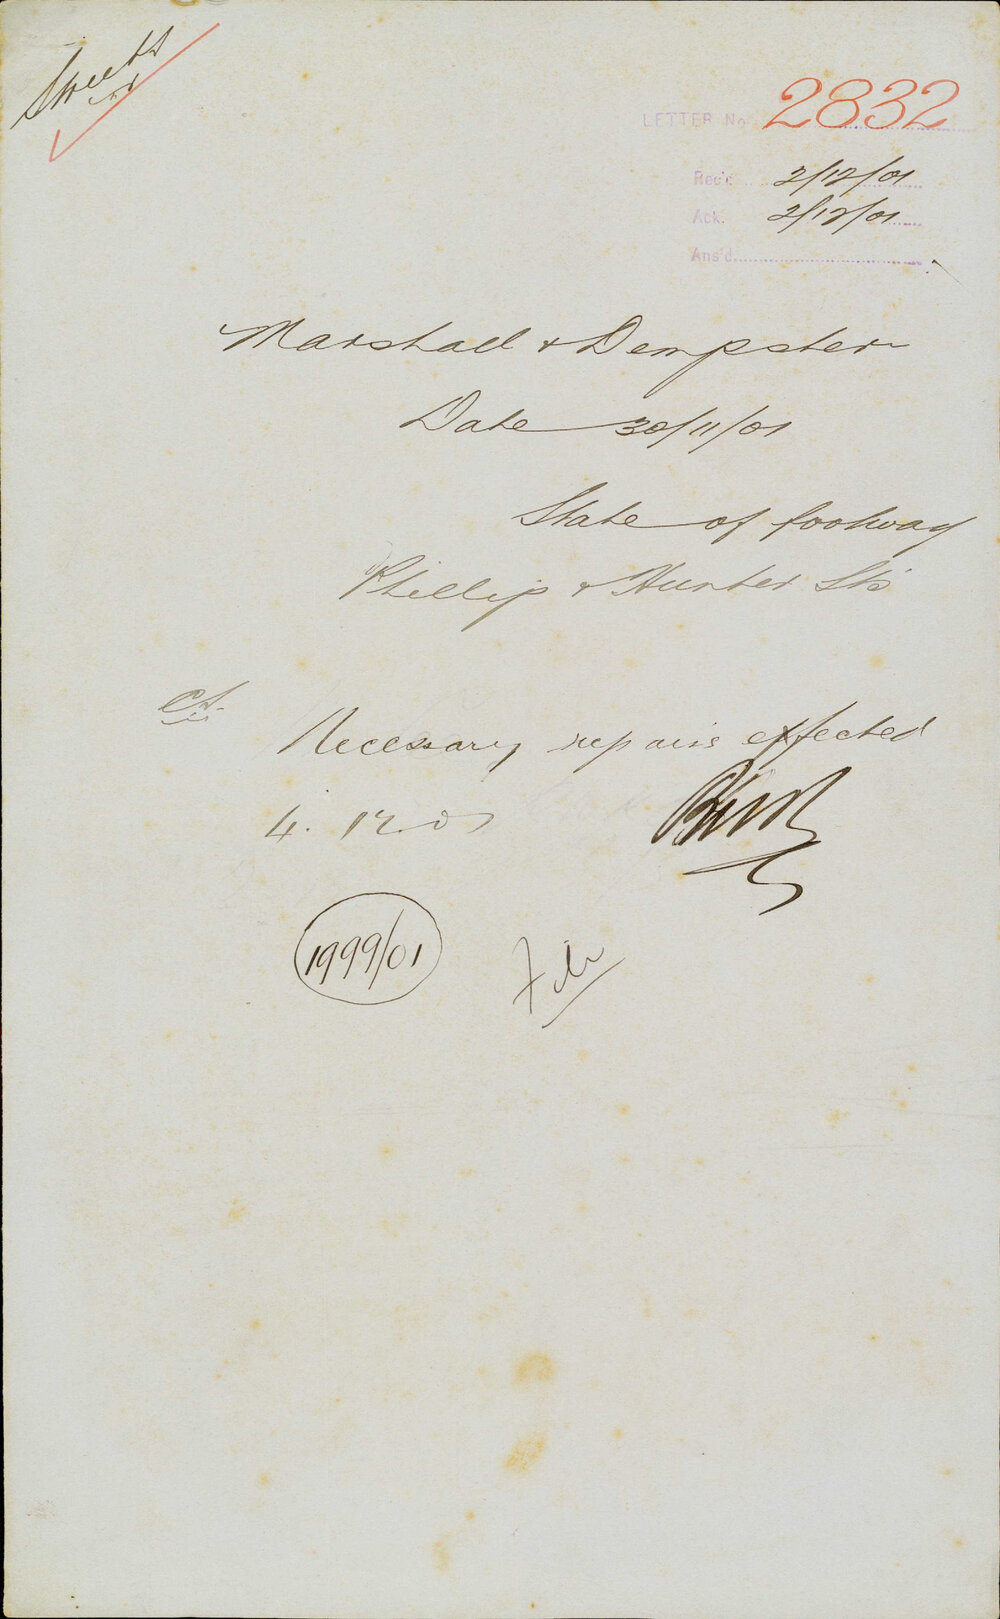 Streets
LETTER No 2832
Rec'd 2/12/01
Ack. 2/12/01
Ans'd
Marshall & Dempster
Date 30/11/01
State of footway
Phillip & Hunter Sts
Necessary repairs effected
4.12.01
1999/01
File